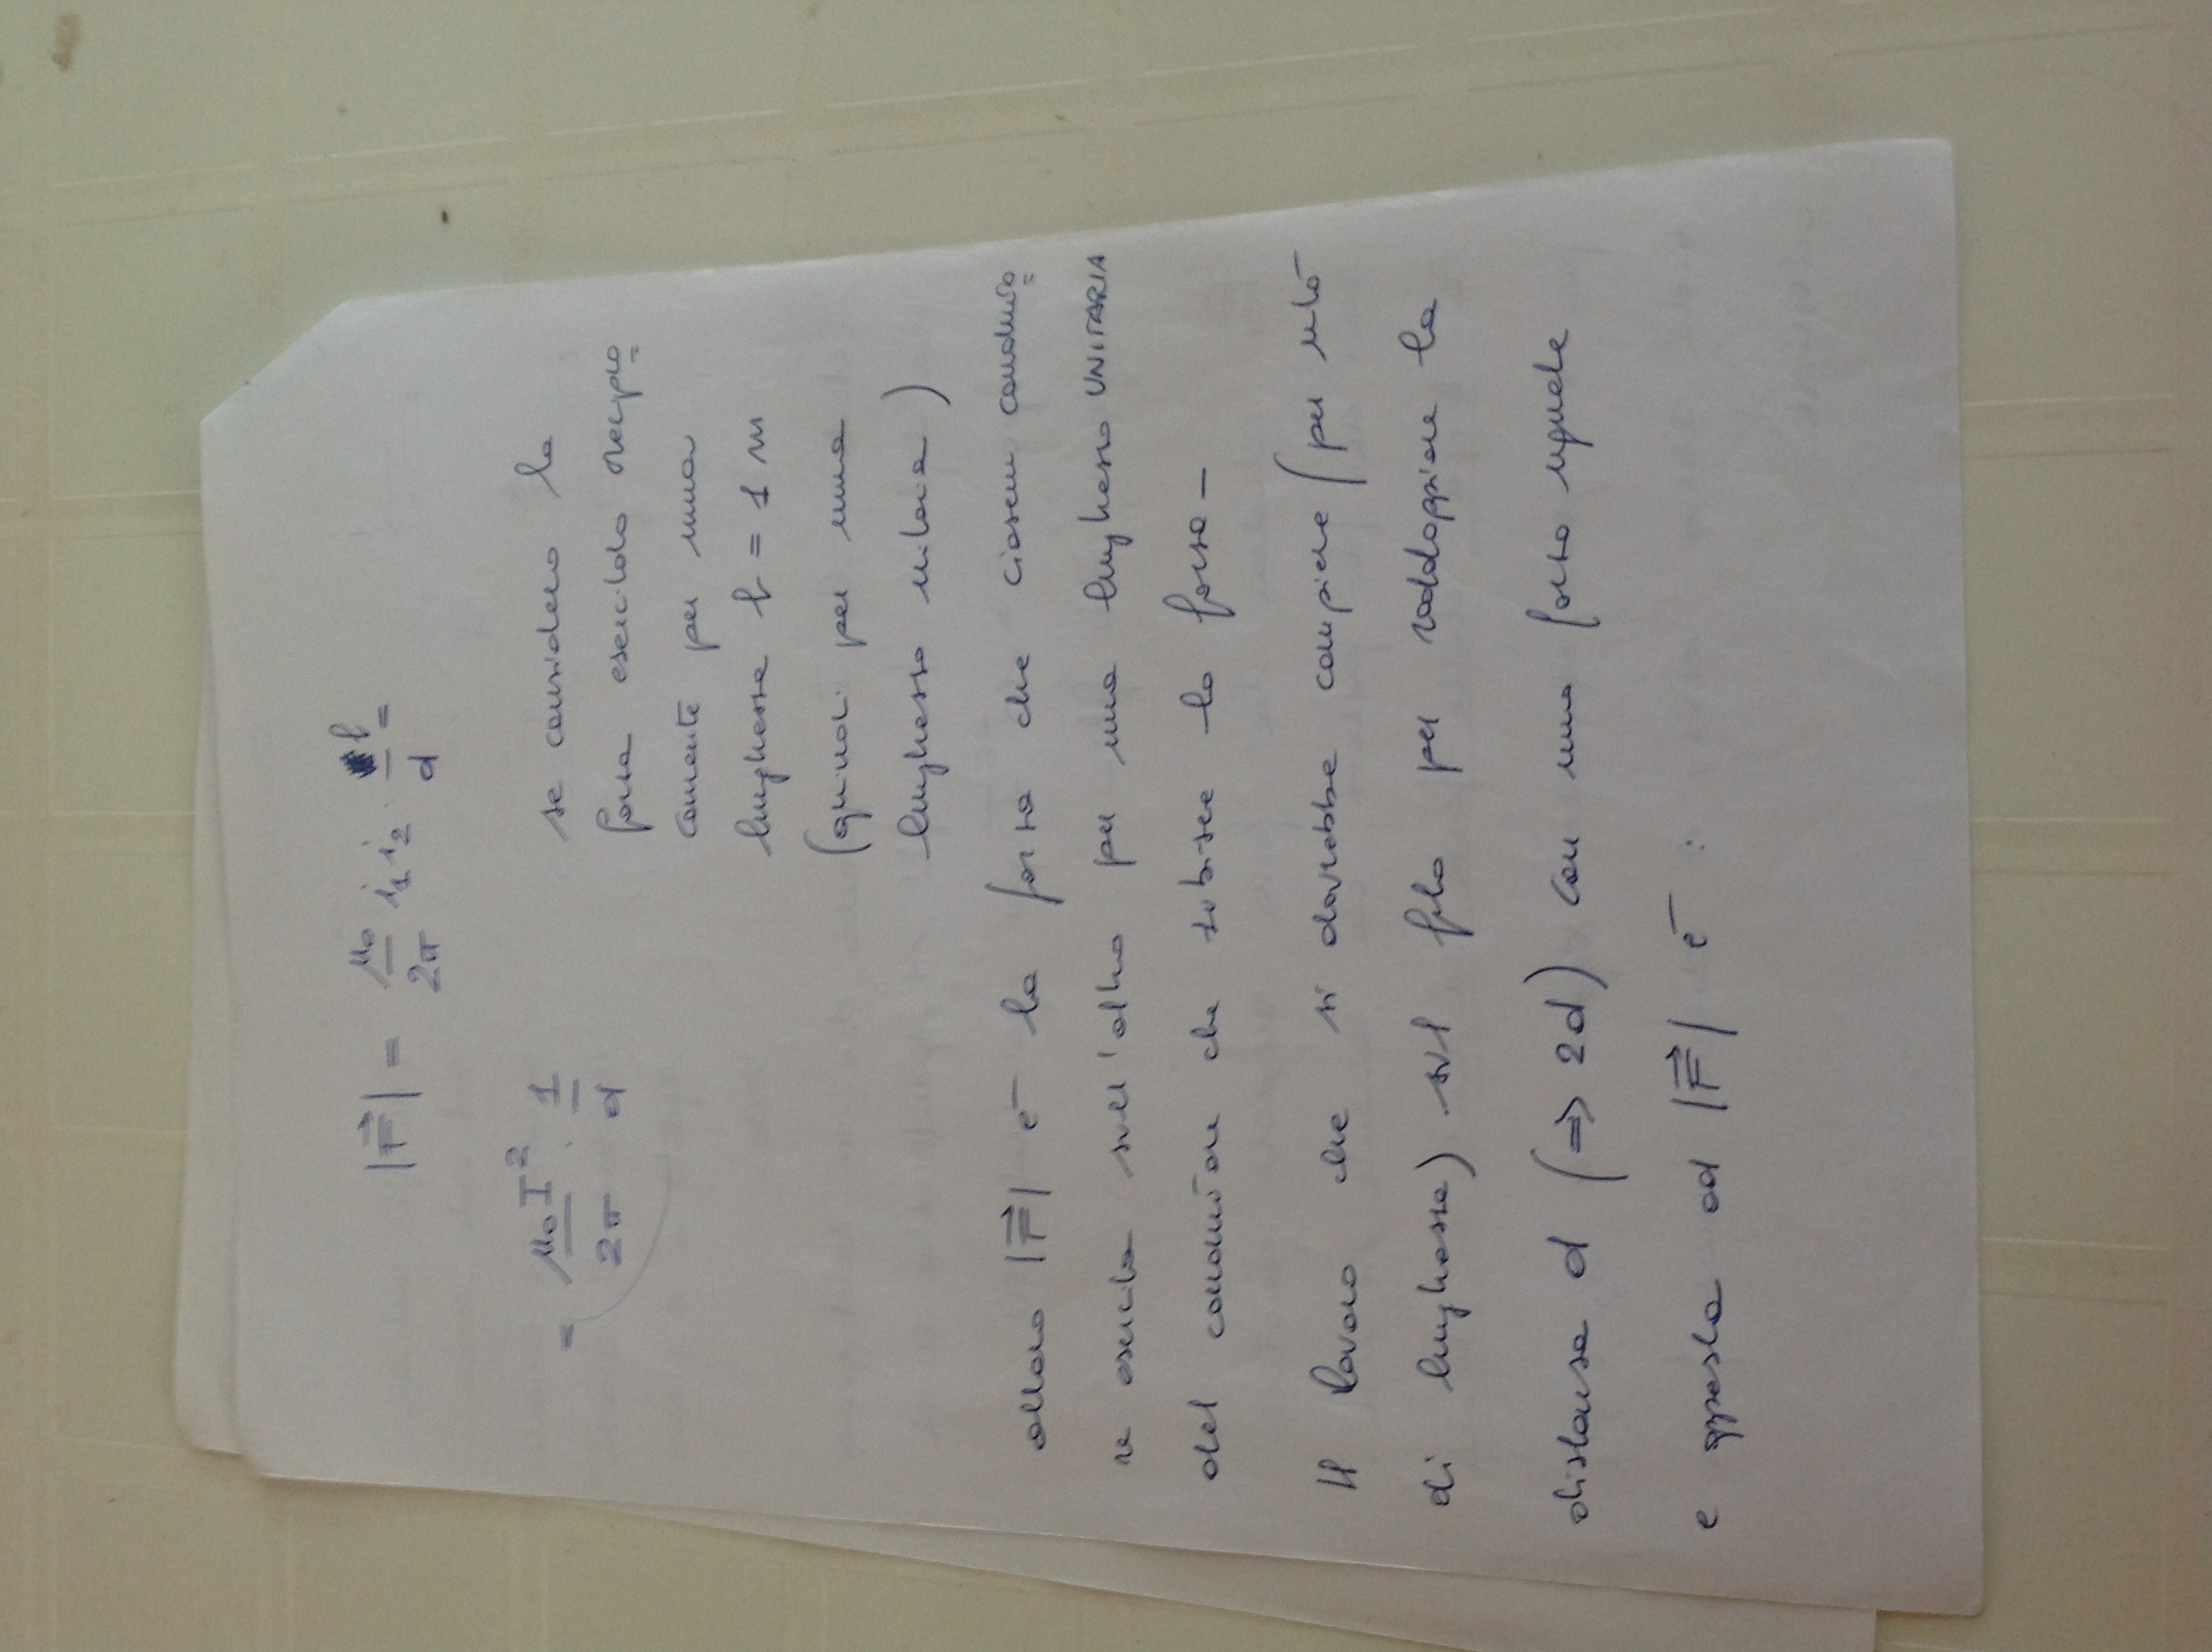 |F⃗| = μ₀/2π i₁ i₂ · l/d =
= μ₀I²/2π · 1/d
se considero la
forza esercitata recipro
camente per una
lunghezza l = 1 m
(quindi per una
lunghezza unitaria)
allora |F⃗| è la forza che ciascun condutto
re esercita sull'altro per una lunghezza UNITARIA
del conduttore che subisce la forza -
Il lavoro che si dovrebbe compiere (per unità
di lunghezza) sul filo per raddoppiare la
distanza d (⇒ 2d) con una forza uguale
e opposta ad |F⃗| è :